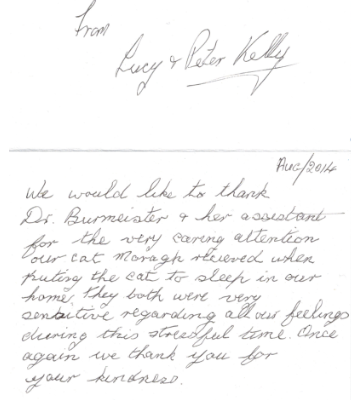 From
Lucy & Peter Kelly
Aug/2014
We would like to thank
Dr. Burmeister & her assistant
for the very caring attention
our cat Moragh recieved when
puting the cat to sleep in our
home, they both were very
sensitive regarding all our feelings
during this stressful time. Once
again we thank you for
your kindness.